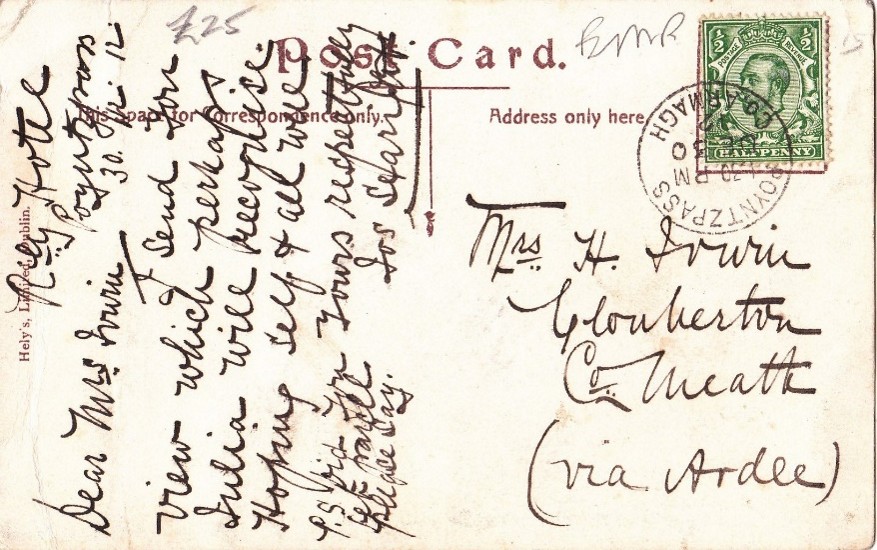 £25
Post Card.
This Space for Correspondence only.
Address only here
½ ½
POSTAGE REVENUE
HALFPENNY
POYNTZPASS
CO. ARMAGH
30 PM
DE 30
Hely's, Limited, Dublin.
Rly Hotel
Poyntzpass
30. 12
Dear Mrs Irwin
I send you
view which perhaps
Julia will recognise.
Hoping self & all well
Yours respectfully
Jos
P.S. Did you
get
please say.
Mrs H. Irwin
Co. Meath
(via Ardee)